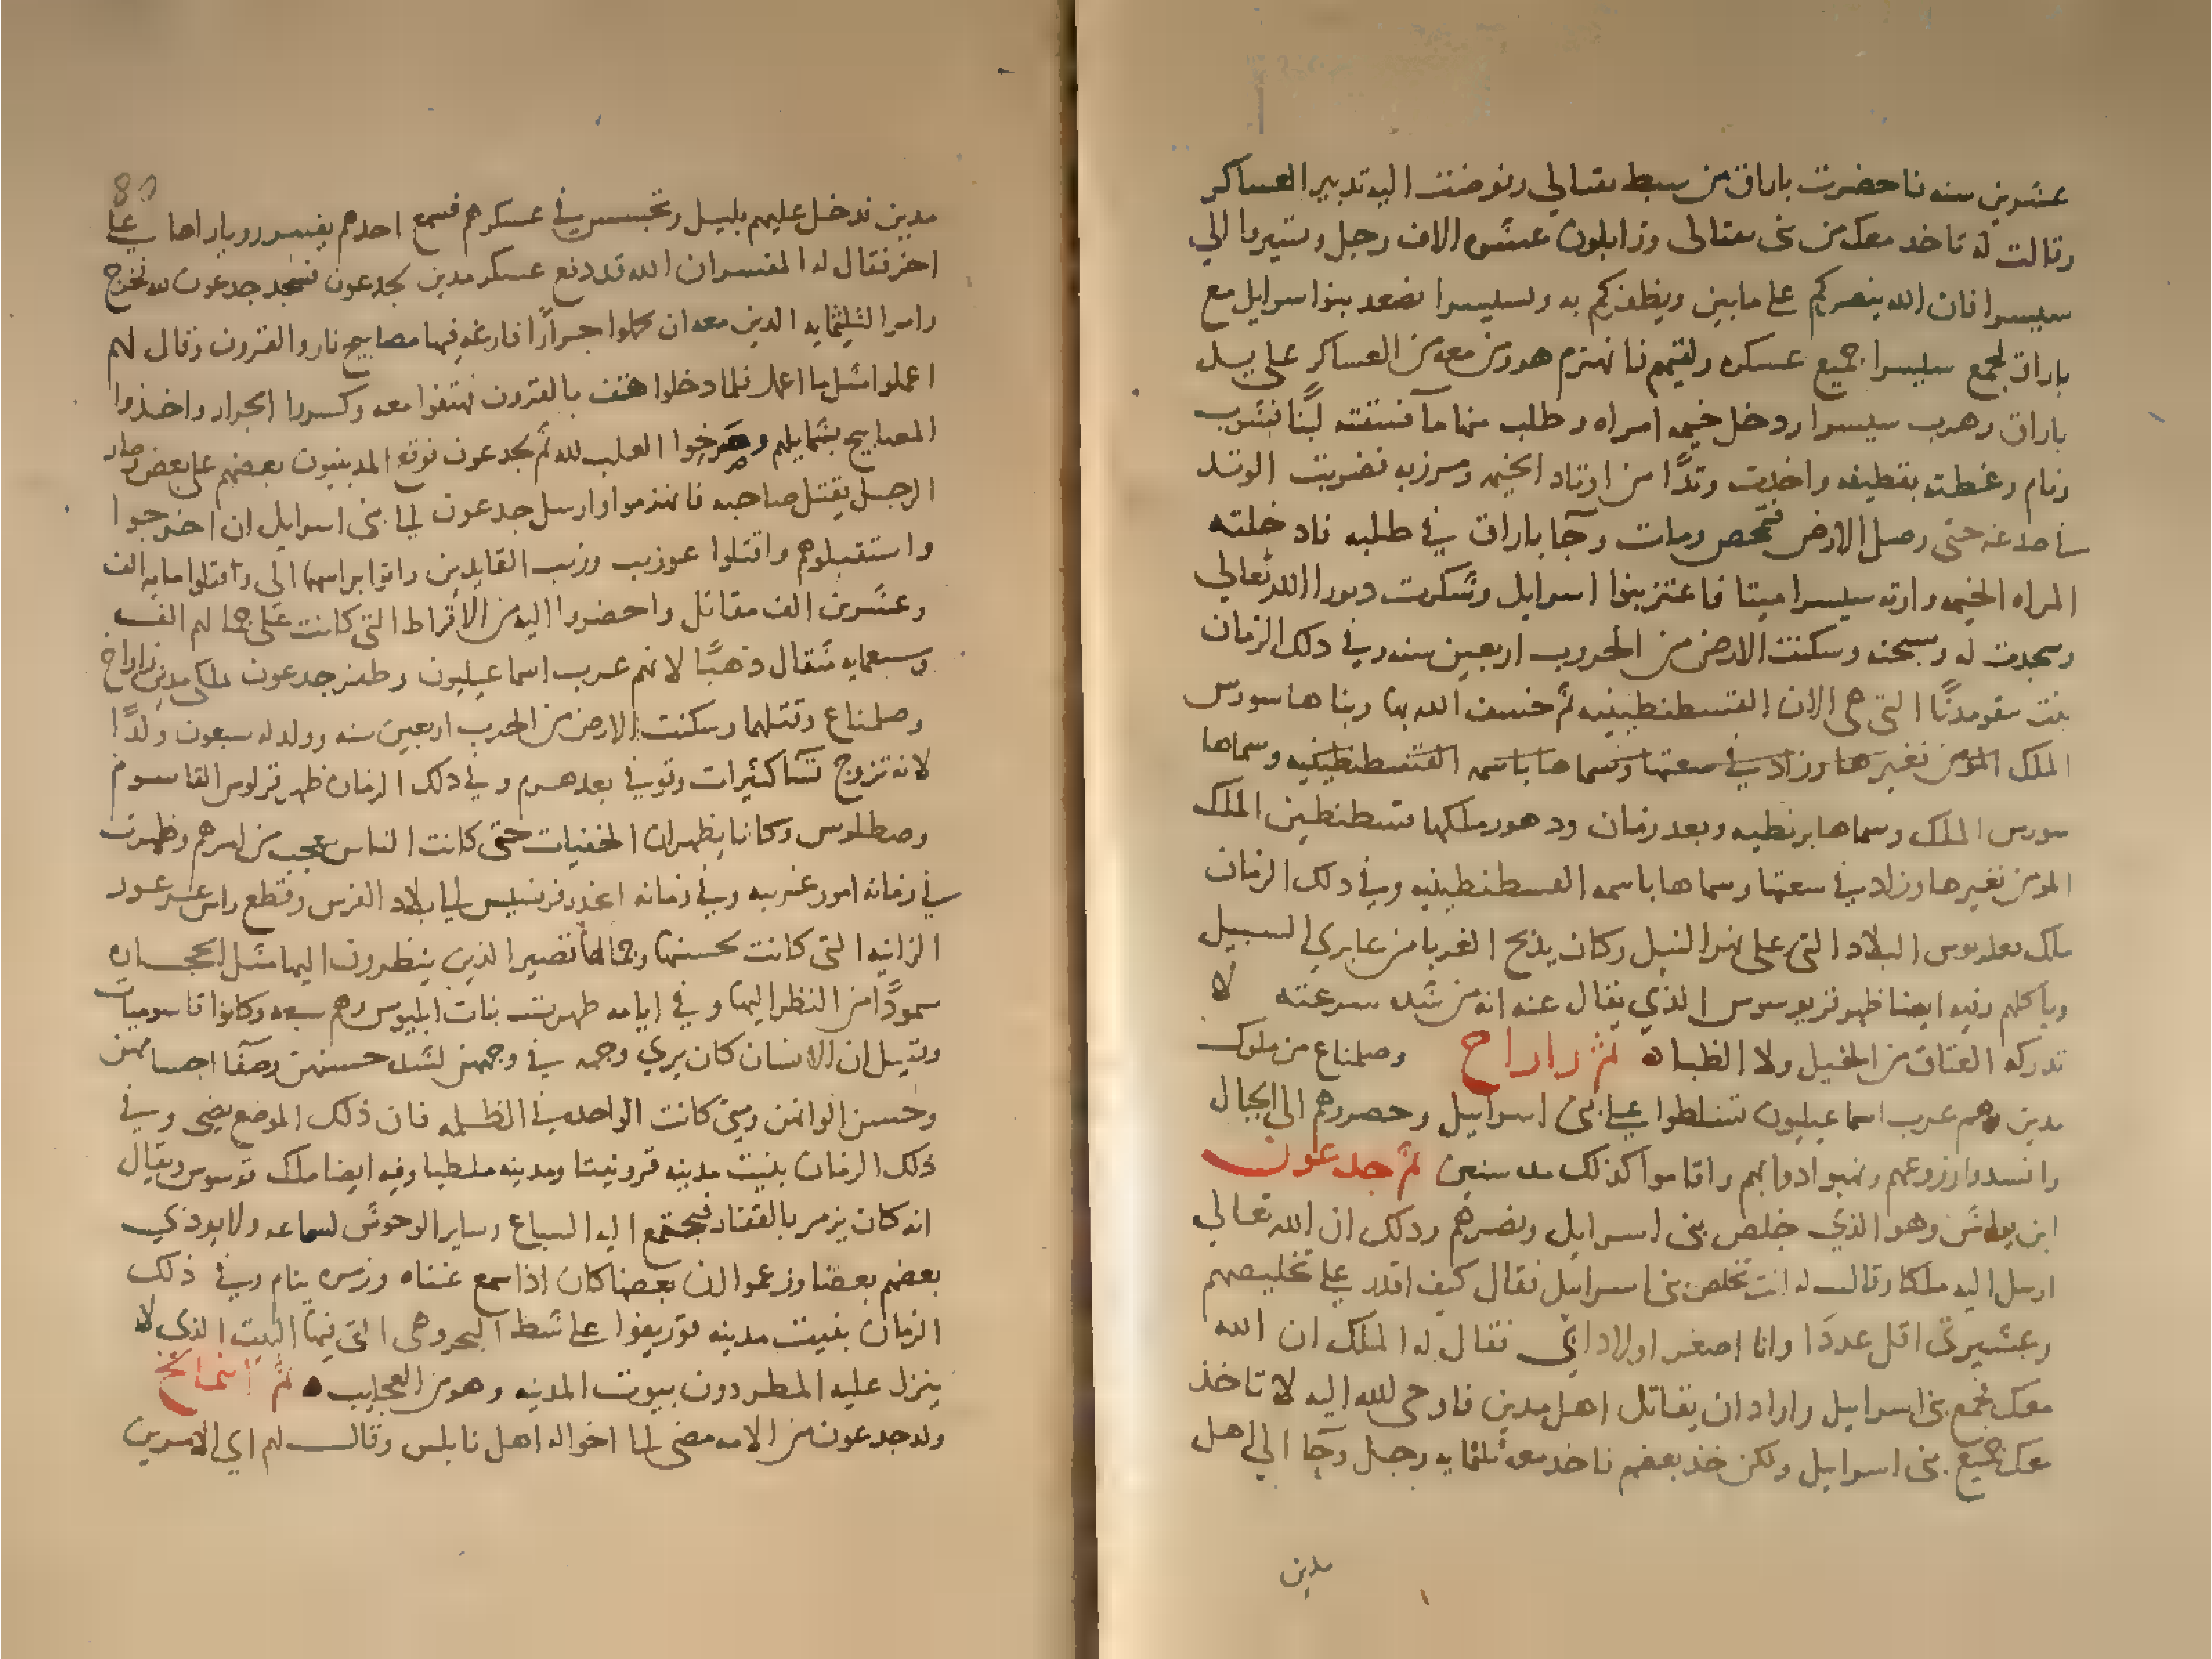 عشرين سنه فاحضرت باراق من سبط نفتالي وفوضت اليه تدبير العساكر
وقالت له تاخد معك من بنى نفتالى وزابلون عشره الاف رجل وتسير بها الي
سيسرا فان الله ينصركم على مابين ويظفركم به وبسيسرا فصعد بنوا اسرايل مع
باراق فجمع سيسرا جميع عسكره ولقيهم فانهزم هو ومن معه من العساكر على يد
باراق وهرب سيسرا ودخل خيمه امراه وطلب منها مآ فسقته لبنًا فشرب
ونام وغطته بقطيفه واخدت وتدًا من اوتاد الخيمه ومرزبه فضربت الوتد
في صدغه حتى وصل الارض فتمحص ومات وجآ باراق في طلبه فادخلته
المراه الخيمه وارته سيسرا ميتا فاعتز بنوا اسرايل وشكرت دبورا الله تعالي
وسجدت له وسبحته وسكنت الارض من الحروب اربعين سنه وفي دلك الزمان
بنت التى هى الان القسطنطينيه ثم خسف الله بها وبناها سورس
الملك المومن فغيرها وزاد في سعتها وسماها باسمه القسطنطينيه وسماها
سورس الملك وسماها برنطيه وبعد زمان ودهور ملكها قسطنطين الملك
المومن فغيرها وزاد في سعتها وسماها باسمه القسطنطينيه وفي دلك الزمان
ملك البلاد التى على نهر النيل وكان يذبح الغربا من عابري السبيل
وياكلهم وفيه ايضا ظهر الذي يقال عنه انه من شده سرعته لا
تدركه العتاق من الخيل ولا الظباه ثم زاراح وصلمناع من ملوك
مدين وهم عرب اسماعيليون تسلطوا على بنى اسراييل وحصروهم الى الجبال
وافسدوا زروعهم ونهبوا دوابهم واقاموا كذلك مده سنين ثم جدعون
ابن يواش وهو الذي خلص بنى اسرايل ونصرهم ودلك ان الله تعالي
ارسل اليه ملكا وقال له انت تخلص بنى اسراييل فقال كيف اقدر على تخليصهم
وعشيرتى اقل عددًا وانا اصغر اولاد ابي فقال له الملك ان الله
معك فجمع بنى اسراييل واراد ان يقاتل اهل مدين فاوحى الله اليه لا تاخذ
معك جميع بنى اسراييل ولكن خذ بعضهم فاخد معه ثلثمايه رجل وجآ الي اهل
مدين
80
مدين فدخل عليهم بليل وتجسس في عسكرهم فسمع احدهم يفسر رويا راها على
اخر فقال له المفسر ان الله قد دفع عسكر مدين لجدعون فسجد جدعون لله فخرج
وامر الثلثمايه الدين معه ان يحملوا جرارًا فارغه فيها مصابيح نار والقرون وقال لهم
اعملوا مثل ما اعمل فلما دخلوا هتف بالقرون فهتفوا معه وكسروا الجرار واخذوا
المصابيح بشمايلهم وصرخوا الغلب لله ثم لجدعون فوقع المدينيون بعضهم على بعض وصار
الرجل يقتل صاحبه فانهزموا وارسل جدعون الى بنى اسرايل ان اخرجوا
واستقبلوهم واقتلوا عوزيب وزيب القايدين واتوا براسهما الى وقتلوا مايه الف
وعشرين الف مقاتل واحضروا اليه من الاقراط التى كانت على جمالهم الف
وسبعمايه مثقال ذهبًا لانهم عرب اسماعيليون وظفر جدعون بملكى مدين زاراح
وصلمناع وقتلهما وسكنت الارض من الحرب اربعين سنه وولد له سبعون ولدًا
لانه تزوج نسآ كثيرات وتوفي بعد هرم وفي دلك الزمان ظهر
وكانا يظهران الخفيات حتى كانت الناس تعجب من امرهم وظهرت
في زمانه امور غريبه وفي زمانه الى بلاد الفرس وقطع راس
الزانيه التى كانت بحسنها وجمالها تصير الذين ينظرون اليها مثل الحجاره
من النظر اليها وفي ايامه ظهرت بنات ابليوس وهم سبعه وكانوا
وقيل ان الانسان كان يري وجهه في وجههن لشده حسنهن وصفآ اجسامهن
وحسن الوانهن ومتى كانت الواحده في الظلمه فان ذلك الموضع يضى وفي
ذلك الزمان بنيت مدينه ومدينه ملطيا وفيه ايضا ملك ويقال
انه كان يزمر فيجتمع اليه السباع وساير الوحوش لسماعه ولا يوذي
بعضهم بعضًا وزعموا ان بعضا كان اذا سمع غناه وزمره ينام وفي ذلك
الزمان بنيت مدينه على شط البحر وهى التى فيها البيت الذي لا
ينزل عليه المطر دون بيوت المدينه وهو من العجايب ثم
ولد جدعون من الامه مضى الى اخواله اهل نابلس وقال لهم اي الامرين